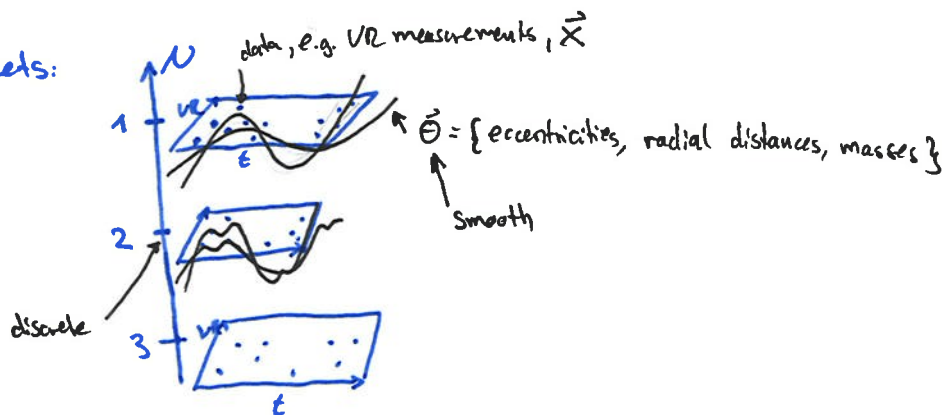 ets:
N
data, e.g. VR measurements, X⃗
VR
1
t
Θ⃗ = { eccentricities, radial distances, masses }
smooth
2
discrete
3
VR
t